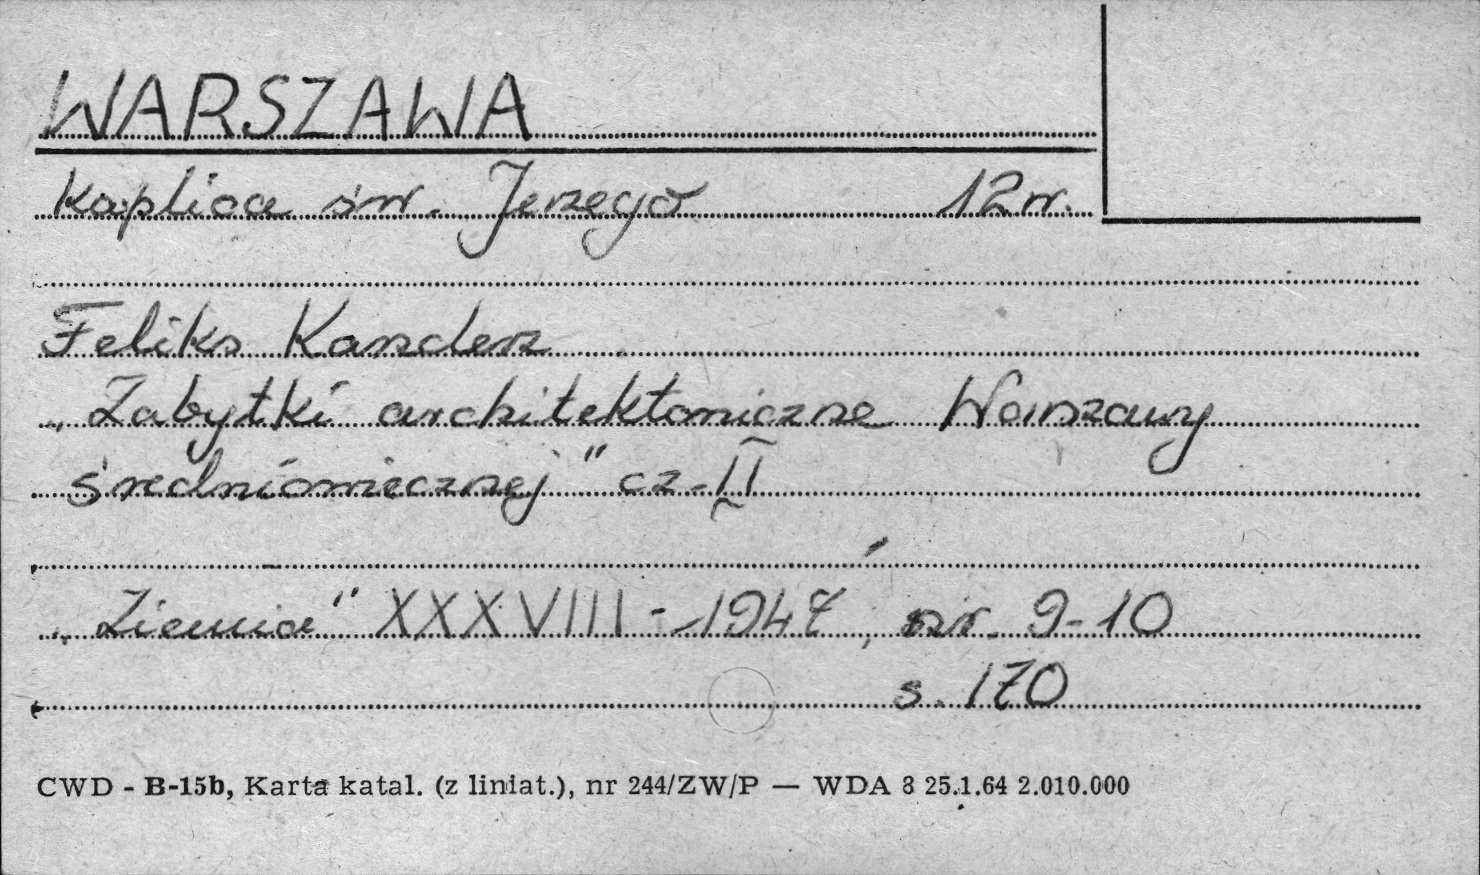 WARSZAWA
Kaplica św. Jerzego 12 w.
Feliks Kanclerz
„Zabytki architektoniczne Warszawy
średniowiecznej" cz. II
„Ziemia" XXXVIII - 1947, nr. 9-10
s. 170
CWD - B-15b, Karta katal. (z liniat.), nr 244/ZW/P — WDA 8 25.1.64 2.010.000